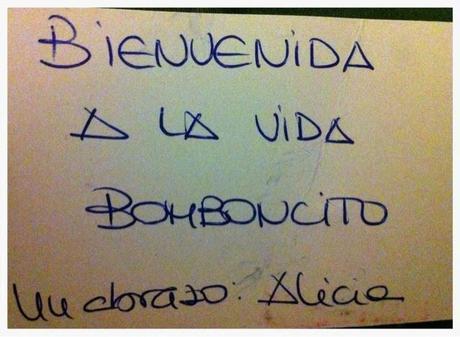 BIENVENIDA
A LA VIDA
BOMBONCITO
Un abrazo: Alicia